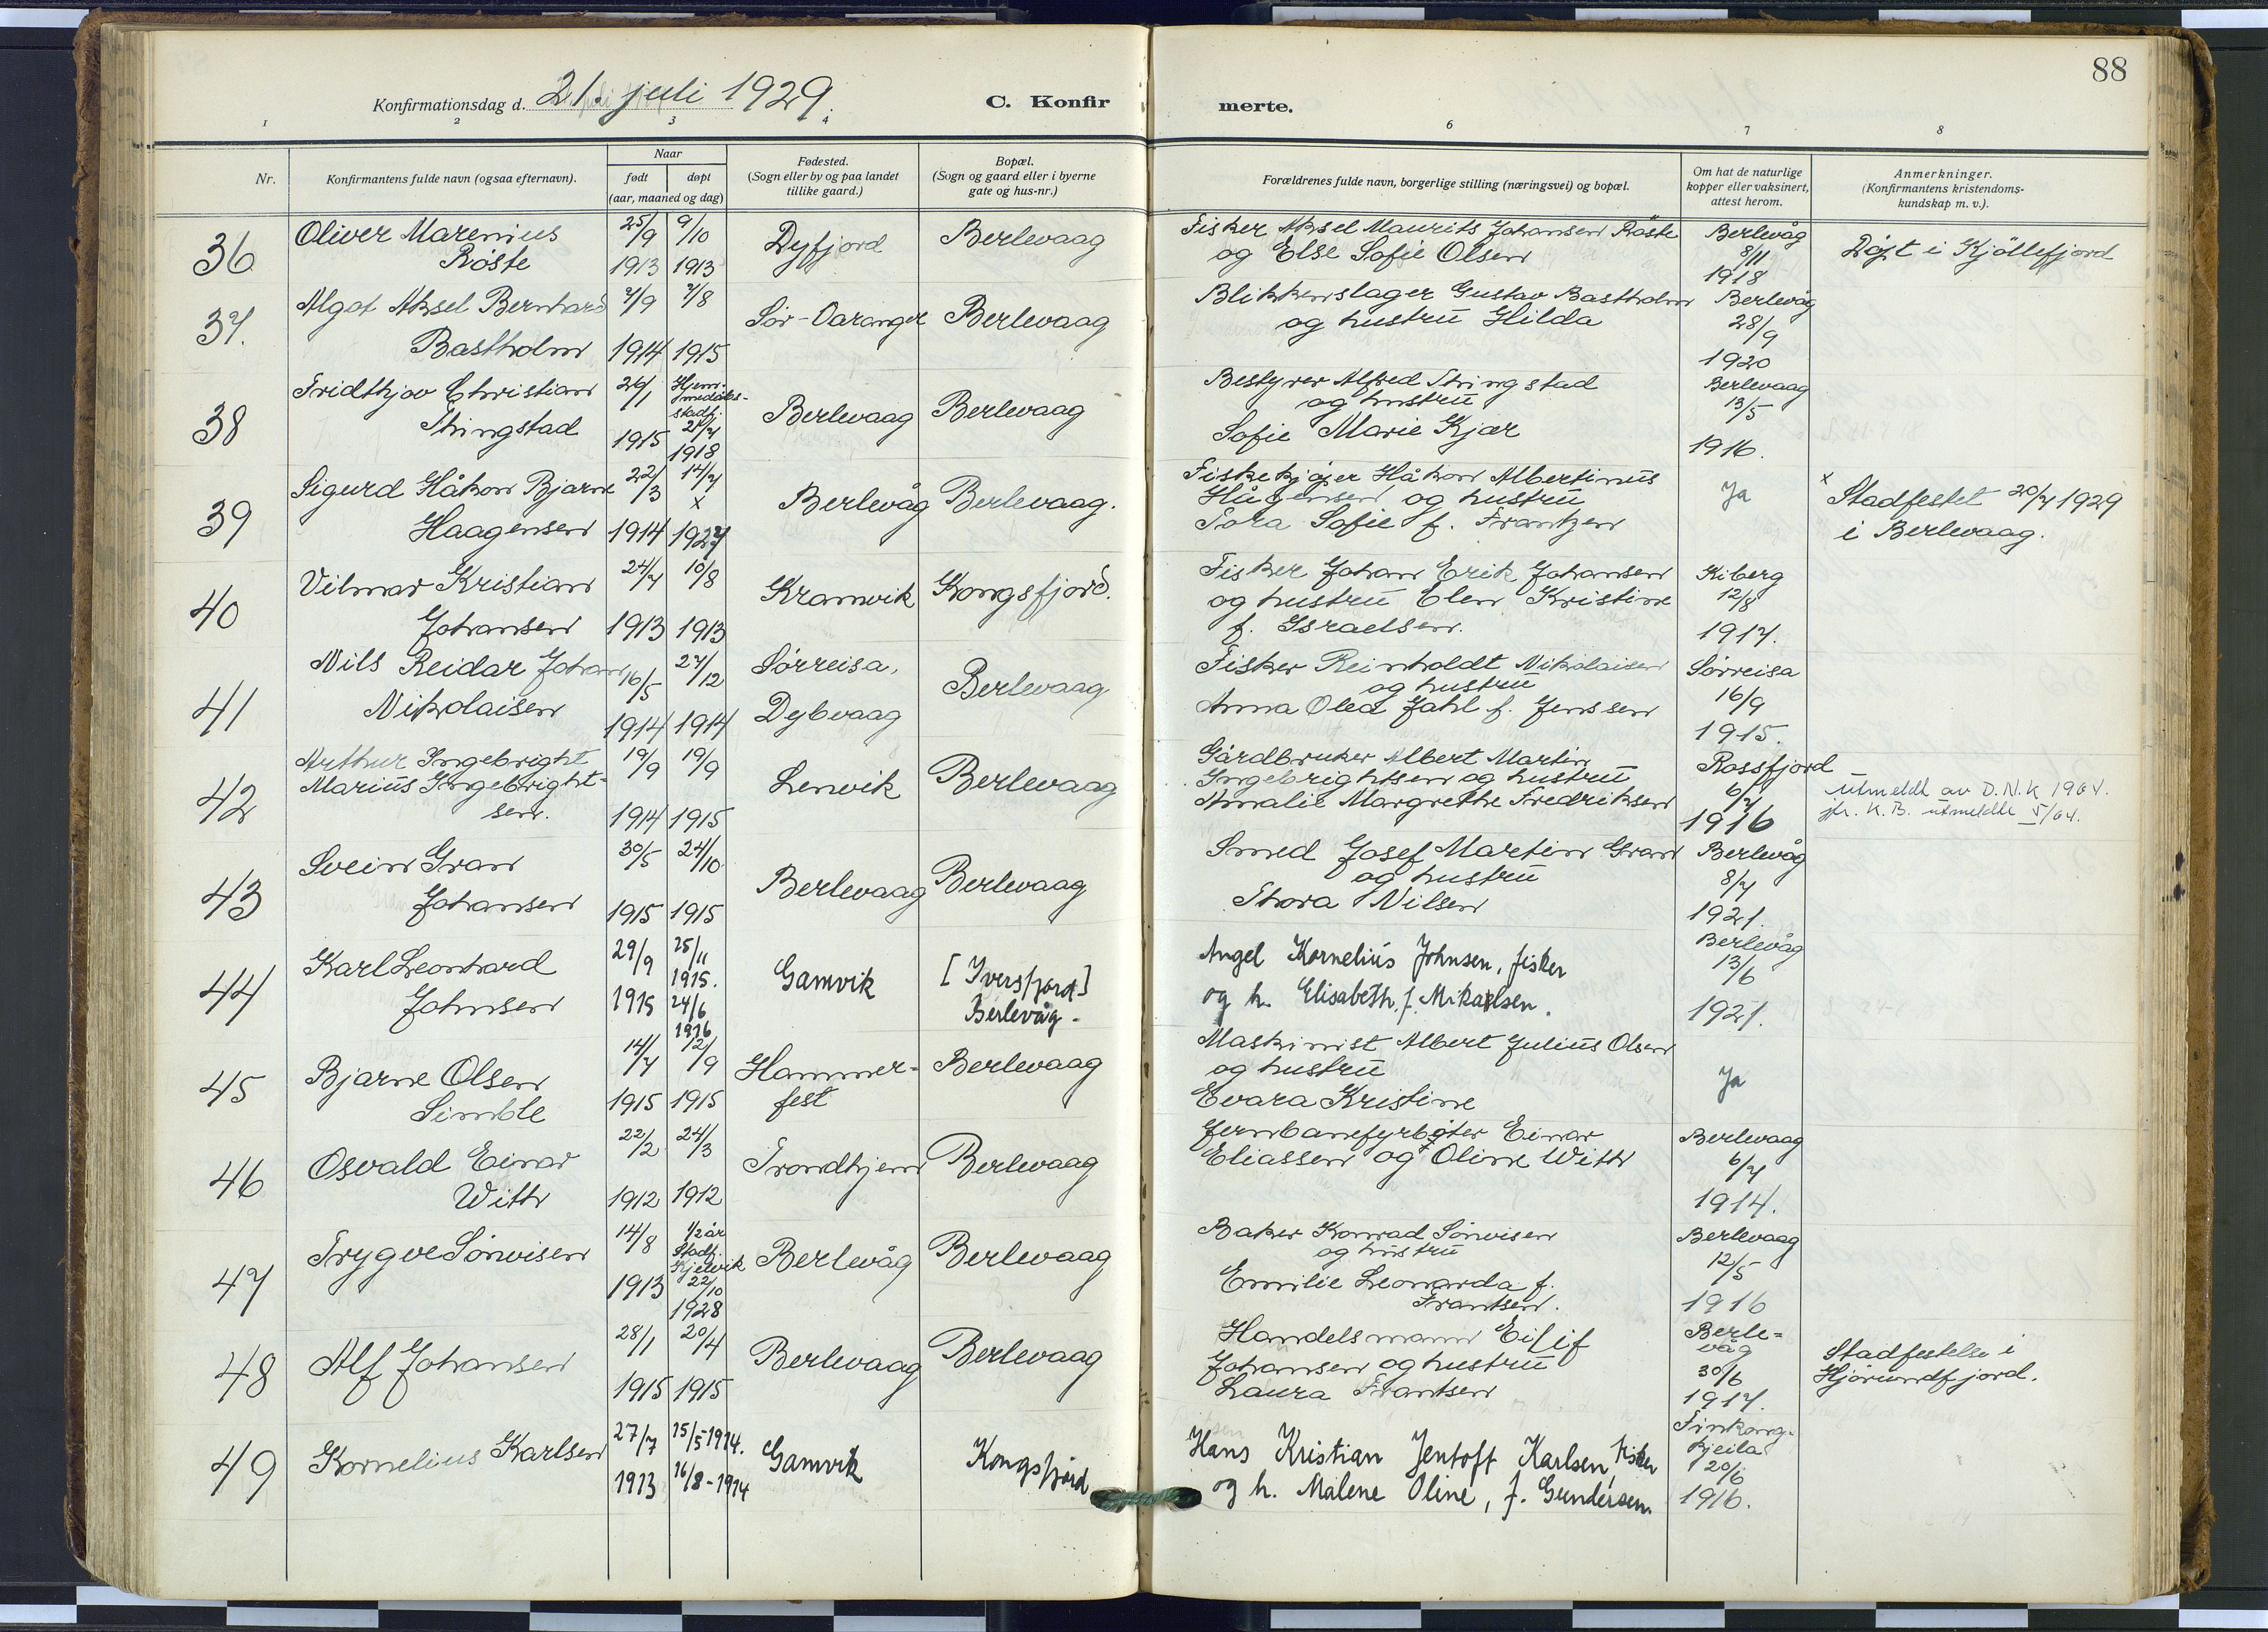 88
Konfirmationsdag d. 21. juli 1929.
C. Konfir merte.
1 2 3 4 6 7 8
Nr.
Konfirmantens fulde navn (ogsaa efternavn).
Naar
født døpt
(aar, maaned og dag)
Fødested.
(Sogn eller by og paa landet
tillike gaard.)
Bopæl.
(Sogn og gaard eller i byerne
gate og hus-nr.)
Forældrenes fulde navn, borgerlige stilling (næringsvei) og bopæl.
Om hat de naturlige
kopper eller vaksinert,
attest herom.
Anmerkninger.
(Konfirmantens kristendoms-
kundskap m. v.).
36 Oliver Marenius 25/9 9/10 Dyfjord Berlevaag Fisker Aksel Maurits Johansen Røste Berlevåg Døpt i Kjöllefjord
Röste 1913 1913 og Else Sofie Olsen 8/11
1918
37. Algot Aksel Bernhard 7/9 7/8 Sör-Varanger Berlevaag Blikkenslager Gustav Bastholm Berlevåg
Bastholm 1914 1915 og hustru Hilda 28/9
1920
38 Fridthjov Christian 26/1 Hjem.
stadf. Berlevaag Berlevaag Bestyrer Alfred Thingstad Berlevaag
og hustru 13/5
Thingstad 1915 21/7 Sofie Marie Kjær 1916.
1918
39 Sigurd Håkon Bjarne 22/3 14/7 Berlevåg Berlevaag. Fiskekjøper Håkon Albertinus Ja x Stadfestet 20/7 1929
x Hågensen og hustru i Berlevaag.
Haagensen 1914 1927 Tora Sofie f. Frantzen
40 Vilmar Kristian 24/7 10/8 Kramvik Kongsfjord. Fisker Johan Erik Johansen Kiberg
og hustru Elen Kristine 12/8
Johansen 1913 1913 f. Israelsen. 1917.
41 Nils Reidar Johan 16/5 27/12 Sörreisa, Berlevaag Fisker Reinholdt Nikolaisen Sörreisa
og hustru 16/9
Nikolaisen 1914 1914 Dybvaag Anna Olea Jahl f. Jenssen 1915.
42 Arthur Ingebright 19/9 19/9 Lenvik Berlevaag Gårdbruker Albert Martin Rossfjord
Marius Ingebright- Ingebrightsen og hustru 6/7 Utmeldt av D.N.K 1964.
sen. 1914 1915 Amalie Margrethe Fredriksen 1916 jfr. K.B. utmeldte 5/64.
43 Svein Gran 30/5 24/10 Berlevaag Berlevaag Smed Josef Martin Gran Berlevåg
og hustru 8/7
Johansen 1915 1915 Thora Nilsen 1921.
44 Karl Leonhard 29/9 25/11 Gamvik [Iversfjord] Angel Kornelius Johnsen, fisker Berlevåg
1915. 13/6
Johnsen 1915 24/6 Berlevåg. og h. Elisabeth f. Mikaelsen. 1921.
1916
45 Bjarne Olsen 14/7 12/9 Hammer- Berlevaag Maskinist Albert Julius Olsen Ja
og hustru
Simble 1915 1915 fest Evara Kristine
46 Osvald Einar 22/2 24/3 Trondhjem Berlevaag Jernbanefyrbøter Einar Berlevaag
Eliassen og Oline Witt 6/7
Witt 1912 1912 1914.
47 Trygve Sönvisen 14/8 1/2 år Berlevåg Berlevaag Baker Konrad Sönvisen Berlevaag
Stadf. og hustru 12/5
Kjelvik
1913 22/10 Emilie Leonarda f. 1916
1928 Frantsen.
48 Alf Johansen 28/1 20/4 Berlevaag Berlevaag Handelsmann Eilif Berle-
våg Stadfestelse i
Johansen og hustru 30/6 Hjörundfjord.
1915 1915 Laura Frantsen 1917.
49 Kornelius Karlsen 27/7 15/5 1914. Gamvik Kongsfjord Hans Kristian Jentoft Karlsen, fisker Finkong-
kjeila
20/6
1913 16/8-1914 og h. Malene Oline, f. Gundersen 1916.